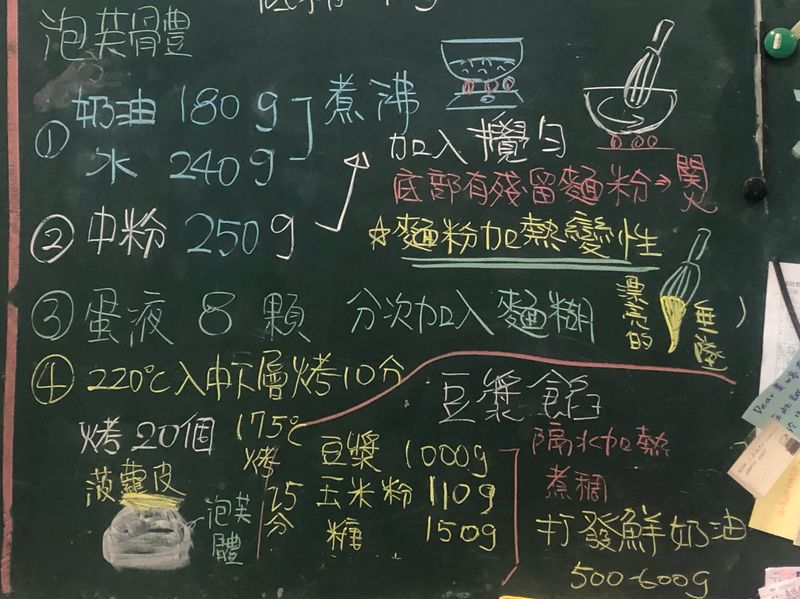 泡芙體
① 奶油 180g
水 240g
煮沸
② 中粉 250g
加入攪勻
底部有殘留麵粉→関火
☆麵粉加熱變性
③ 蛋液 8 顆 分次加入麵糊
漂亮的
垂墜
④ 220℃入中下層烤10分
175℃
烤
25
分
烤20個
菠蘿皮
泡芙
體
豆漿餡
豆漿 1000g
玉米粉 110g
糖 150g
隔水加熱
煮稠
打發鮮奶油
500-600g
Dear